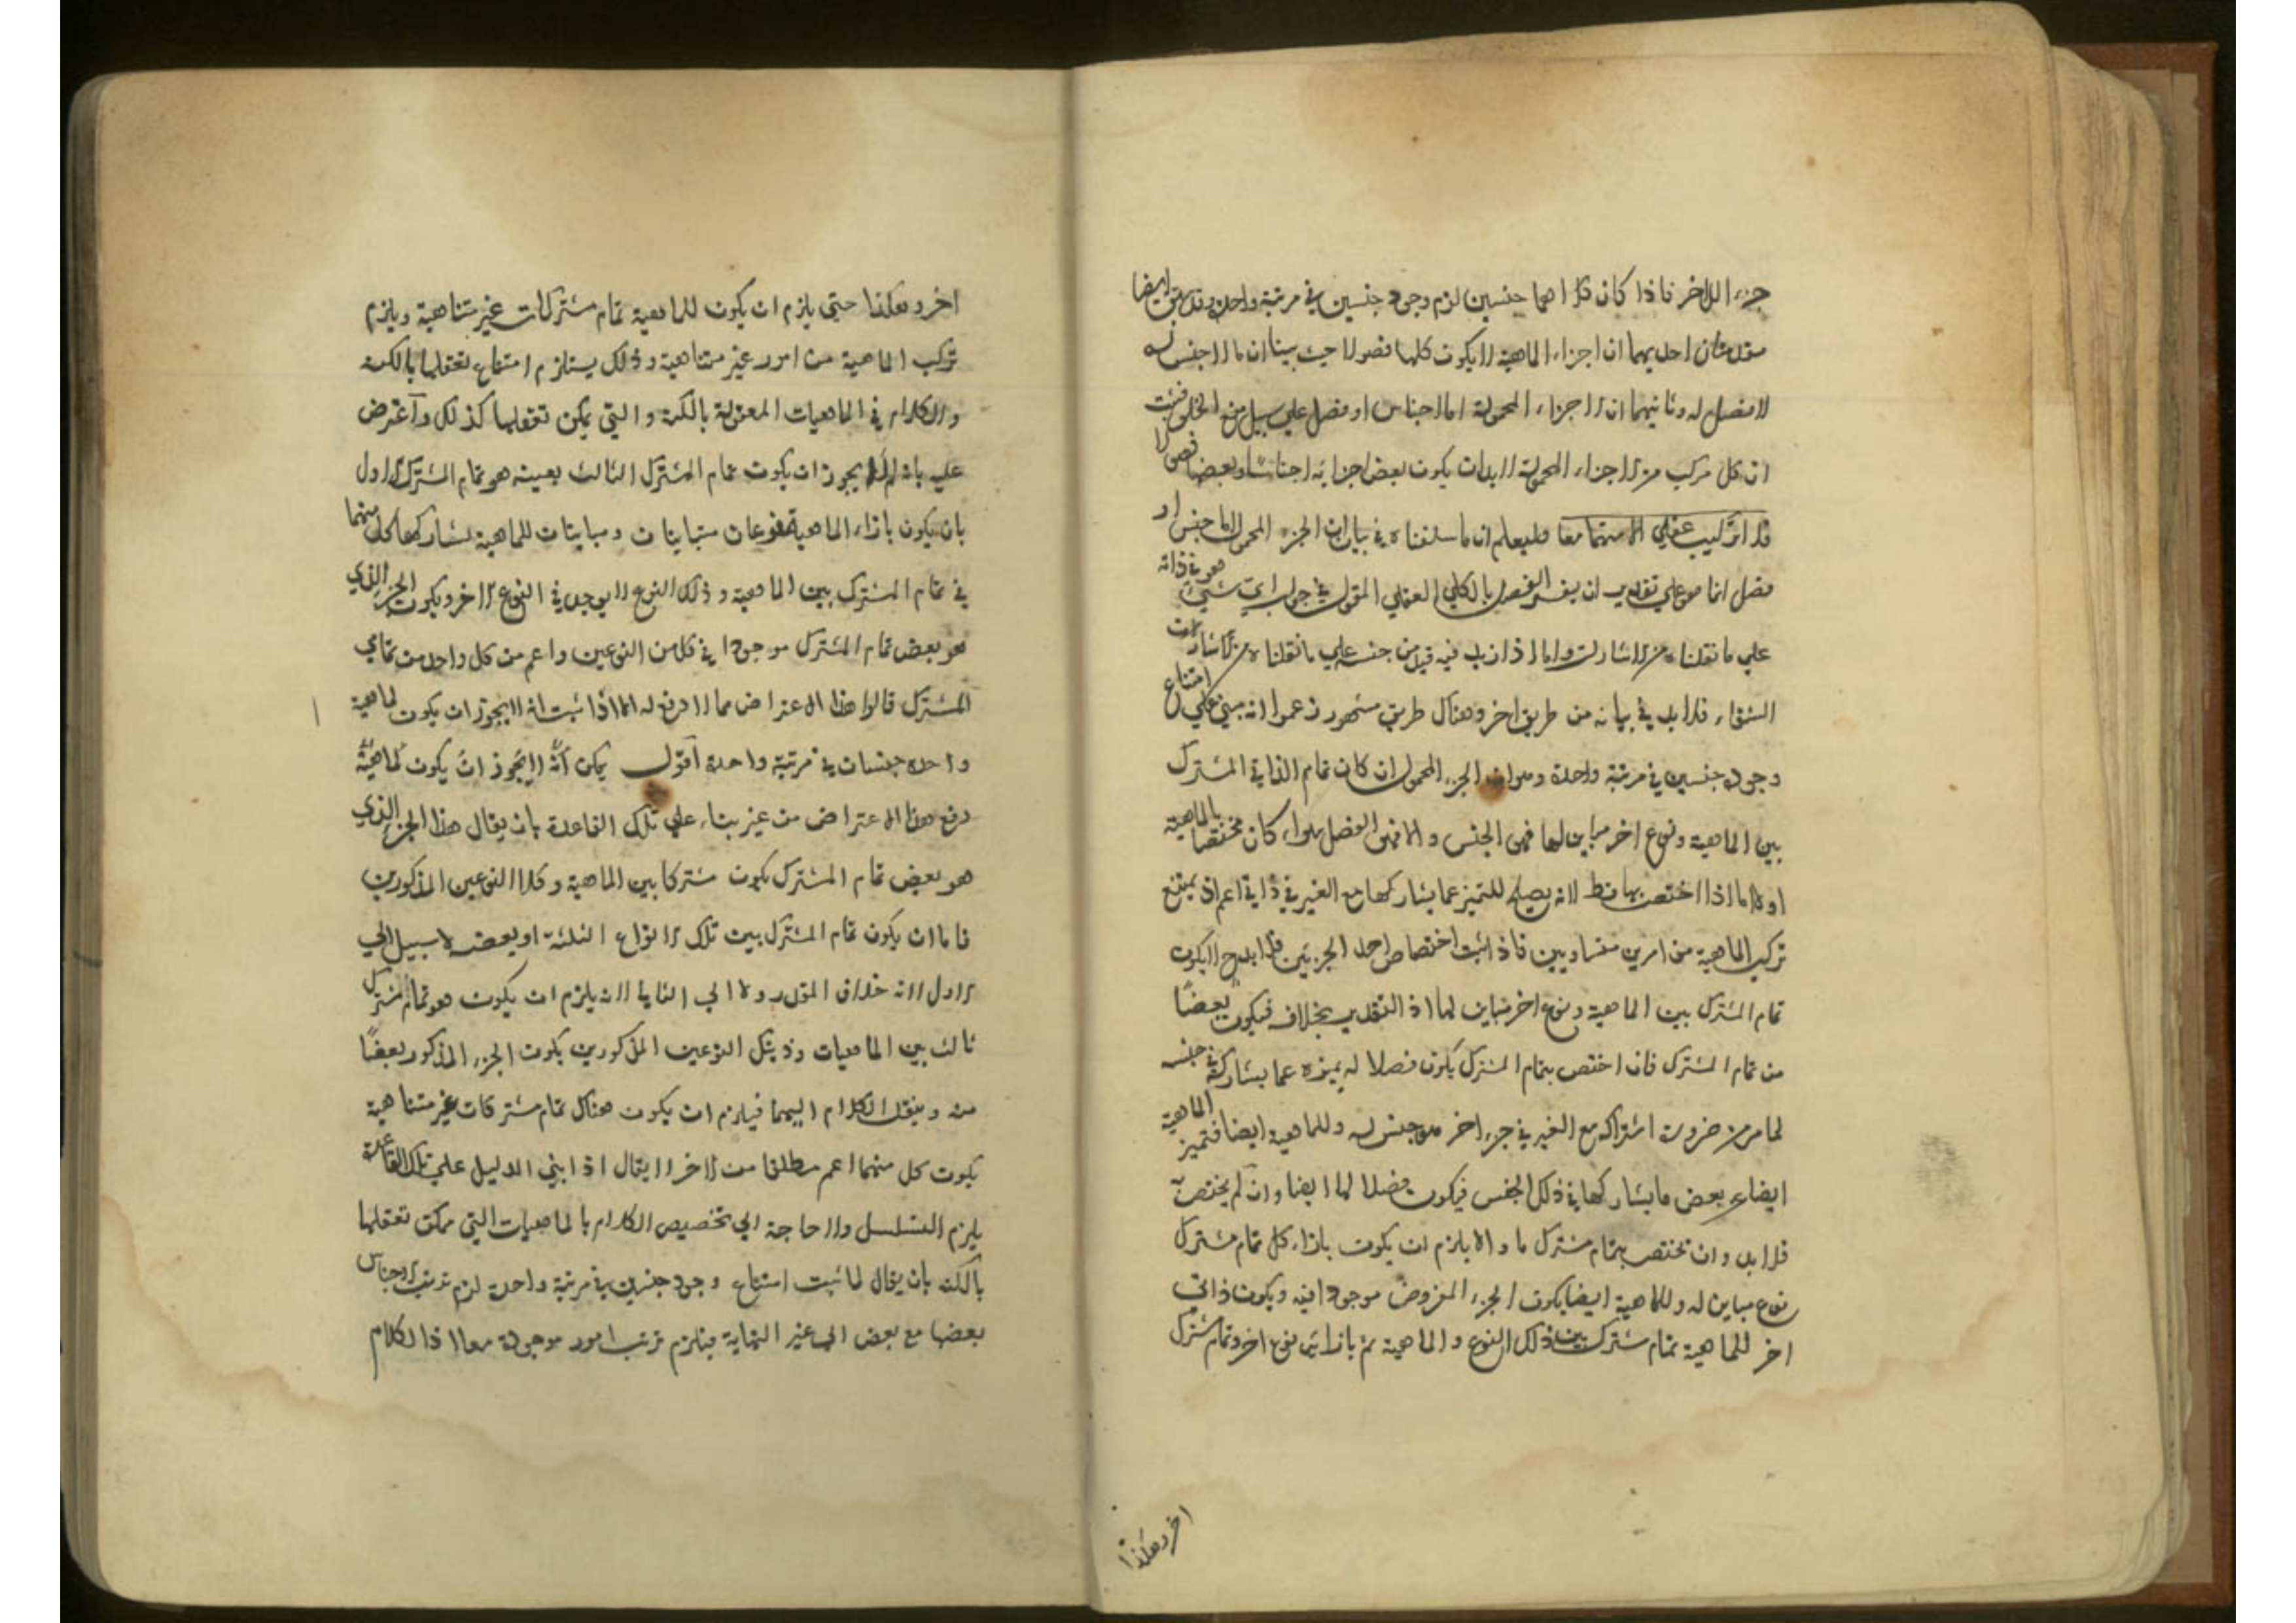 جزء اللاخر فاذا كان كلاهما جنسين لزم وجود جنسين في مرتبة واحدة وقد ايضا
مقدمتان احديهما ان اجزاء الماهية لا يكون كلها فصولا حيث بينا ان ما لا جنس له
لا فصل له وثانيهما ان الاجزاء المحمولة اما اجناس او فصل علي سبيل منع الخلو فثبت
ان كل مركب من الاجزاء المحمولة لا بد ان يكون بعض اجزائه اجناسا وبعضها فصولا
فلا تركيب عقلي الا منهما معا فليعلم ان ما سلفناه في بيان ان الجزء المحمول اما جنس او
فصل انما هو علي تقدير ان يفسر الفصل بالكلي العقلي المقول في جواب اي شيء هو في ذاته
علي ما نقلناه من الاشارات واما اذا زيد فيه قيد من جنسه علي ما نقلناه من الاشارات
الشفاء فلا بد في بيانه من طريق اخر وهناك طريق مشهور زعموا انه مبني علي امتناع
وجود جنسين في مرتبة واحدة وهو ان الجزء المحمول ان كان تمام الذاتي المشترك
بين الماهية ونوع اخر مباين لها فهي الجنس والا فهي الفصل سواء كان مختصا بالماهية
او لا اما اذا اختص بها فقط لانه يصلح للتميز عما يشاركها مع الغير في ذاتي اعم اذ يمتنع
تركيب الماهية من امرين متساويين فاذا ثبت اختصاص احد الجزئين فلا بد ح لا يكون
تمام المشترك بين الماهية ونوع اخر مباين لها اذ التقدير بخلافه فيكون بعضا
من تمام المشترك فان اختص بتمام المشترك يكون فصلا له يميزه عما يشاركه في جنسه
لما مر من ضرورة اشتراكه مع الغير في جزء اخر هو جنس له وللماهية ايضا فتميز الماهية
ايضا عن بعض ما يشاركها في ذلك الجنس فيكون فصلا لها ايضا وان لم يختص به
فلا بد وان تختص بتمام مشترك ما والا يلزم ان يكون بازاء كل تمام مشترك
نوع مباين له وللماهية ايضا يكون الجزء المفروض موجودا فيه ويكون ذاتي
اخر للماهية تمام مشترك بين ذلك النوع والماهية ثم بازائه نوع اخر وتمام مشترك
اخر وهكذا
اخر وهكذا حتي يلزم ان يكون للماهية تمام مشتركات غير متناهية ويلزم
تركب الماهية من امور غير متناهية وذلك يستلزم امتناع تعقلها بالكنه
والكلام في الماهيات المعقولة بالكنه والتي يمكن تعقلها كذلك واعترض
عليه بانه لم لا يجوز ان يكون تمام المشترك الثالث بعينه هو تمام المشترك الاول
بان يكون بازاء الماهية نوعان متباينان ومباينان للماهية يشاركها كل منهما
في تمام المشترك بين الماهية وذلك النوع لا يوجد في النوع الاخر ويكون الجزء الذي
هو بعض تمام المشترك موجودا في كل من النوعين واعم من كل واحد من تمامي
المشترك قالوا هذا الاعتراض مما لا دفع له الا اذا ثبت انه لا يجوز ان يكون لماهية
واحدة جنسان في مرتبة واحدة اقول يمكن انه لا يجوز ان يكون لماهية
دفع هذا الاعتراض من غير بناء علي تلك القاعدة بان يقال هذا الجزء الذي
هو بعض تمام المشترك يكون مشتركا بين الماهية وكلا النوعين المذكورين
فاما ان يكون تمام المشترك بين تلك الانواع الثلثة او بعضه لا سبيل الي
الاول لانه خلاف المقدر ولا الي الثاني لانه يلزم ان يكون هو تمام مشترك
ثالث بين الماهيات وذينك النوعين المذكورين يكون الجزء المذكور بعضا
منه وينقل الكلام اليهما فيلزم ان يكون هناك تمام مشتركات غير متناهية
يكون كل منهما اعم مطلقا من الاخر لا يقال اذا بني الدليل علي تلك القاعدة
يلزم التسلسل ولا حاجة الي تخصيص الكلام بالماهيات التي ممكن تعقلها
بالكنه بان يقال لما ثبت امتناع وجود جنسين في مرتبة واحدة لزم ترتب الاجناس
بعضها مع بعض الي غير النهاية فيلزم ترتب امور موجودة معا اذ الكلام